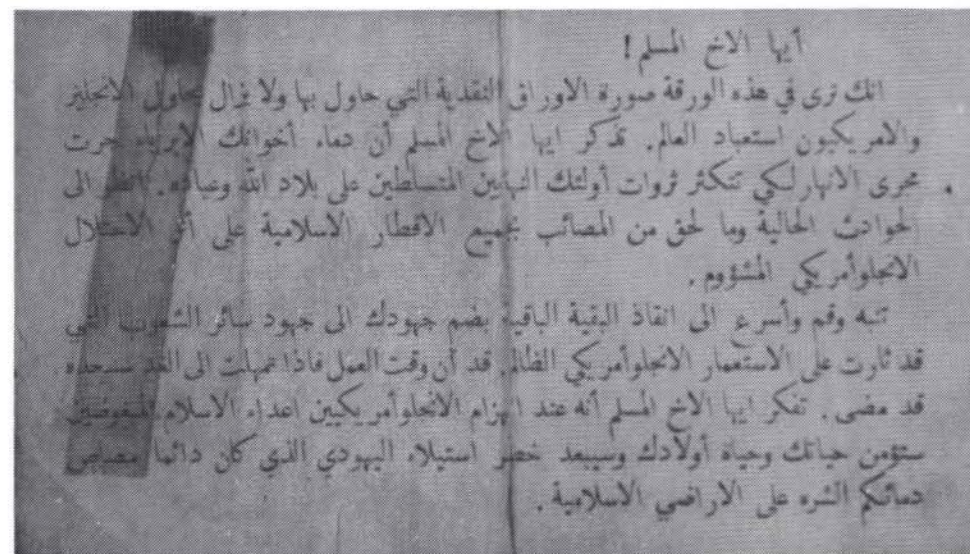 أيها الاخ المسلم !
انك ترى في هذه الورقة صورة الاوراق النقدية التي حاول بها ولا يزال يحاول الانجليز
والامريكيون استعباد العالم. تذكر ايها الاخ المسلم أن دماء أخوانك الابرياء جرت
مجرى الانهار لكي تتكثر ثروات أولئك النهابين المتساطين على بلاد الله وعباده. انظر الى
الحوادث الحالية وما لحق من المصائب بجميع الاقطار الاسلامية على أثر الاحتلال
الانجلوأمريكي المشؤوم.
تنبه وقم وأسرع الى انقاذ البقية الباقية بضم جهودك الى جهود سائر الشعوب التي
قد ثارت على الاستعمار الانجلوأمريكي الظالم. قد آن وقت العمل فاذا تمهلت الى الغد ستجده
قد مضى. تفكر ايها الاخ المسلم أنه عند انهزام الانجلوأمريكيين اعداء الاسلام
ستؤمن حياتك وحياة أولادك وسيبعد خطر استيلاء اليهودي الذي كان دائما مصاص
دمائكم الشره على الاراضي الاسلامية.